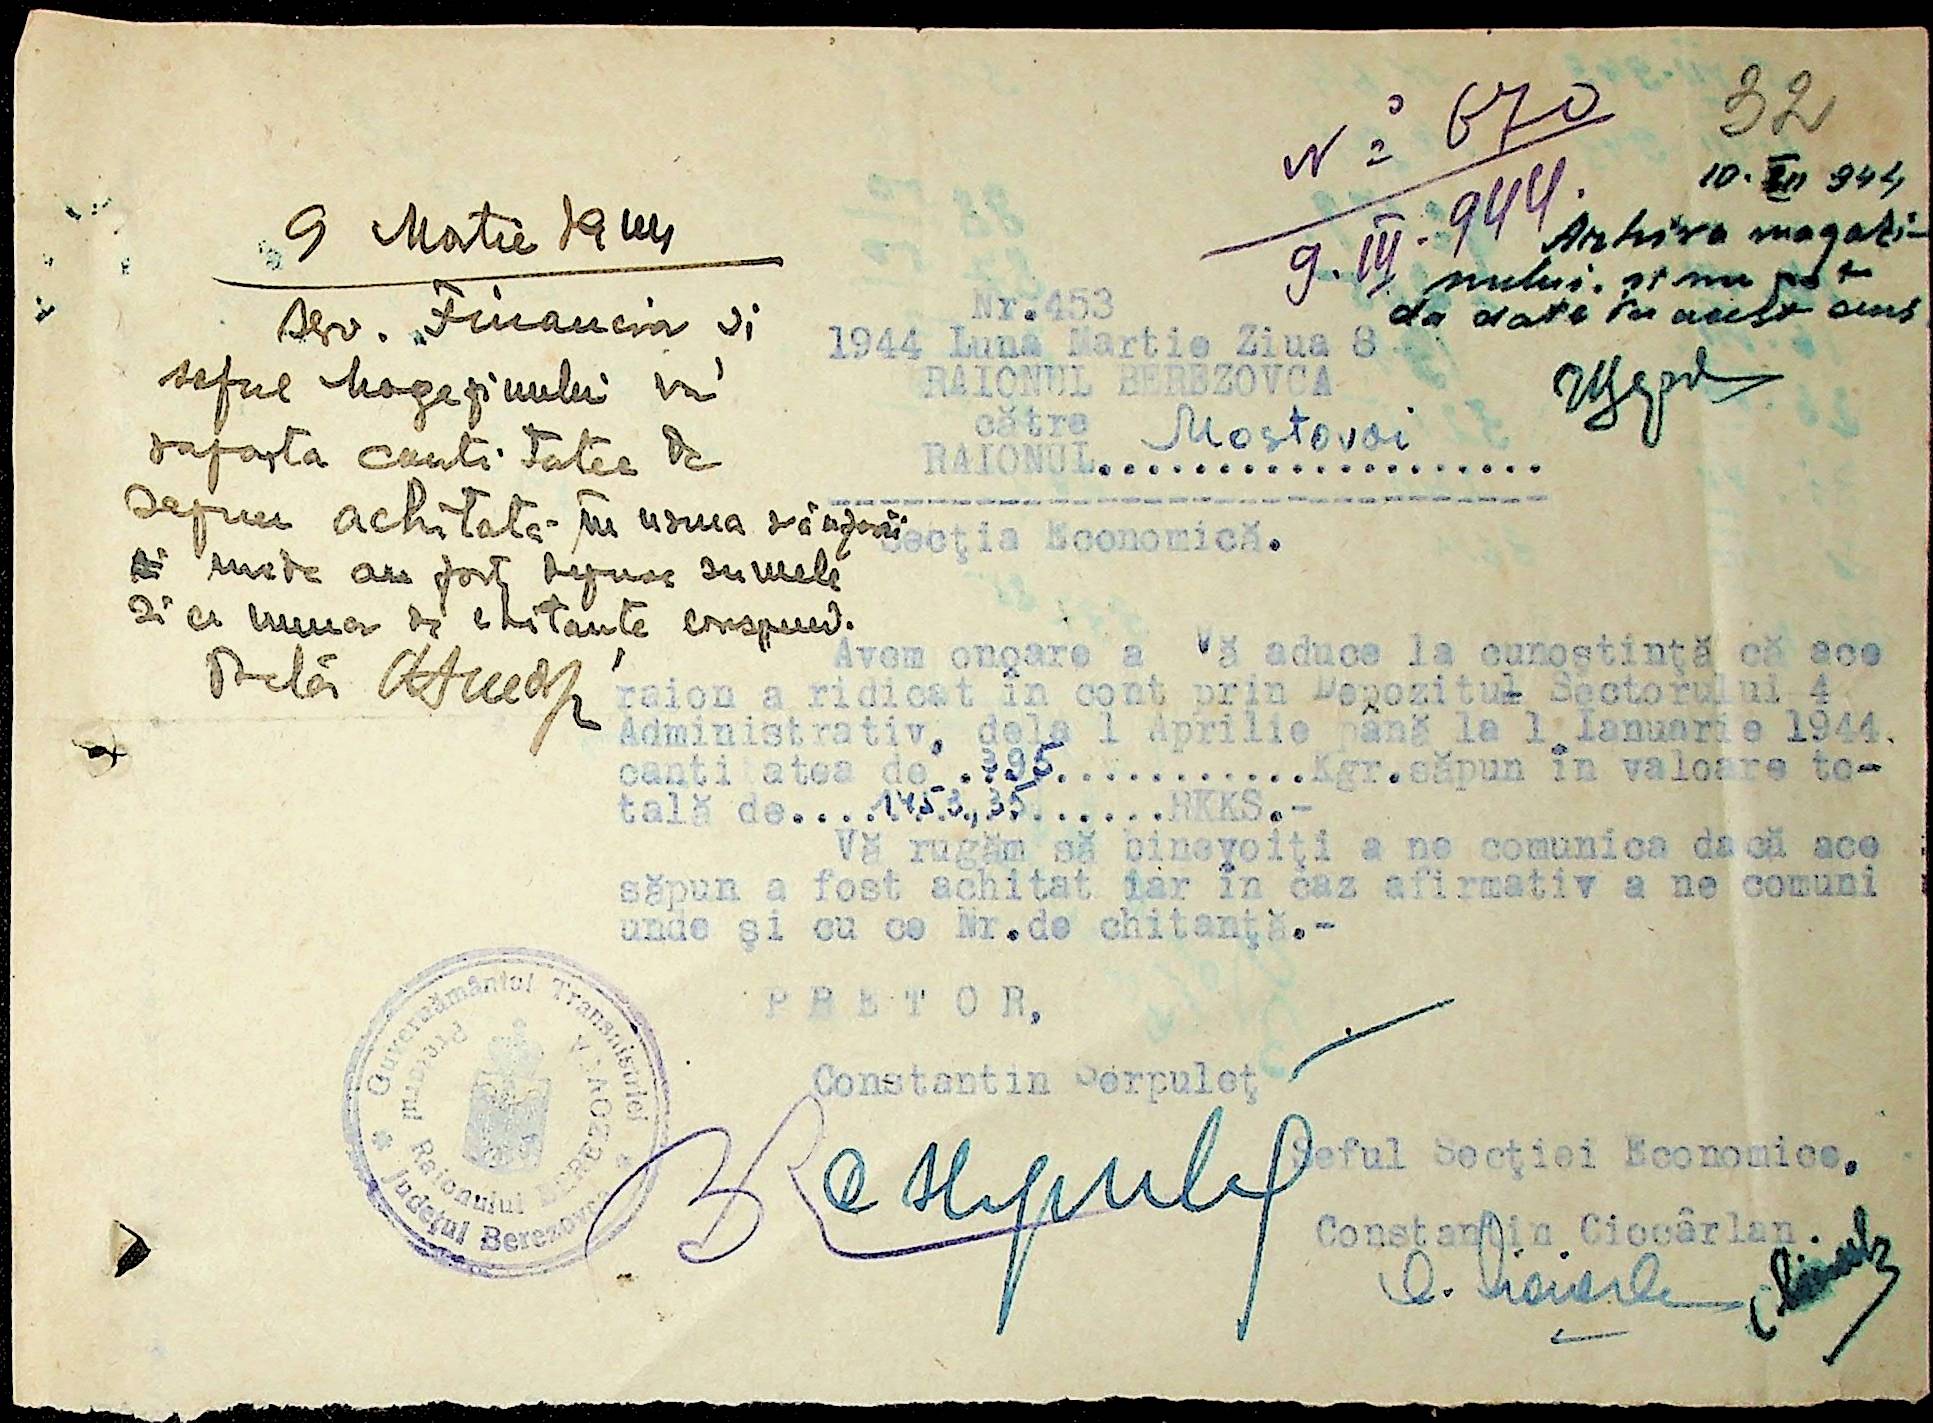 32
Nº 670
9.III.944.
10. III 944
Arhiva magazi-
nului. și nu pot
da date în acest sens
9 Martie 1944
Serv. Financiar și
șeful Magazinului va
raporta cantitatea de
Săpun achitată în urma vânzării
și unde au fost depuse sumele
și ce număr de chitanțe corespund.
Nr.453
1944 Luna Martie Ziua 8
RAIONUL BEREZOVCA
către
RAIONUL. Mostovoi ....................
Secţia Economică.
Avem onoare a Vă aduce la cunostinţă că ace
raion a ridicat în cont prin Depozitul Sectorului 4
Administrativ, dela 1 Aprilie până la 1 Ianuarie 1944.
cantitatea de .395.............Kgr.săpun în valoare to-
tală de....1453,35.......RKKS.-
Vă rugăm să binevoiţi a ne comunica dacă ace
săpun a fost achitat iar în caz afirmativ a ne comuni
unde şi cu ce Nr.de chitanţă.-
P R E T O R,
Constantin Serpuleţ
Seful Secţiei Economice,
Constantin Ciocârlan.
Guvernământul Transnistriei
Judeţul Berezovca
Pretura
Raionului BEREZOVCA